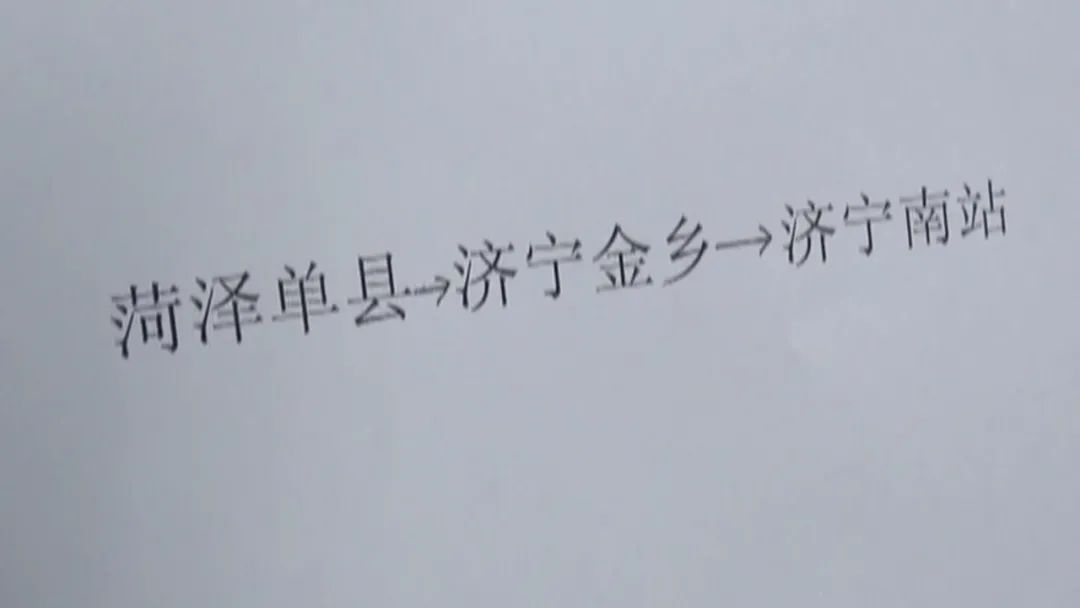 菏泽单县→济宁金乡→济宁南站